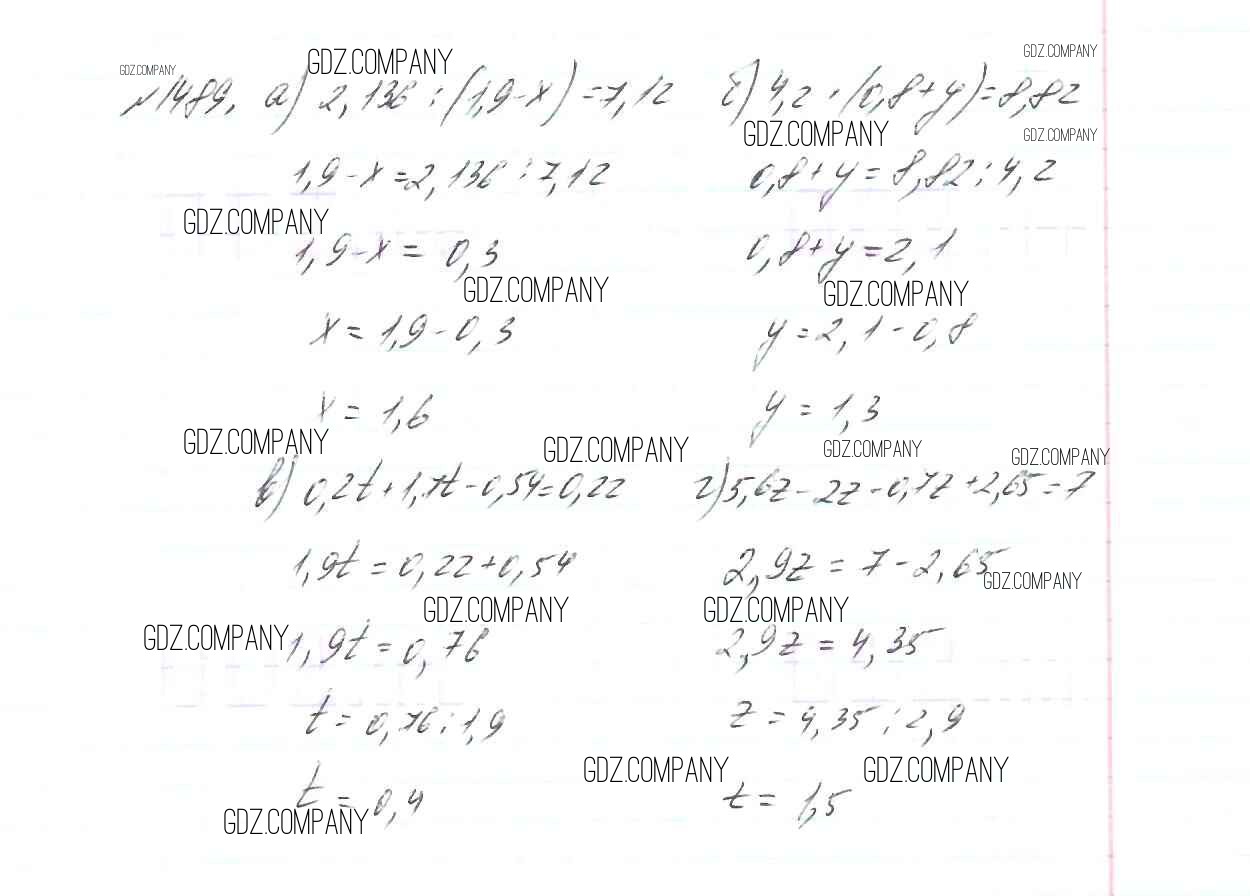 GDZ.COMPANY GDZ.COMPANY GDZ.COMPANY
№1489. а) 2,136 : (1,9-x) = 7,12 б) 4,2 · (0,8+y) = 8,82
GDZ.COMPANY GDZ.COMPANY
1,9-x = 2,136 : 7,12 0,8+y = 8,82 : 4,2
GDZ.COMPANY
1,9-x = 0,3 0,8+y = 2,1
GDZ.COMPANY GDZ.COMPANY
x = 1,9-0,3 y = 2,1-0,8
x = 1,6 y = 1,3
GDZ.COMPANY GDZ.COMPANY GDZ.COMPANY GDZ.COMPANY
в) 0,2t + 1,7t - 0,54 = 0,22 г) 5,6z - 2z - 0,7z + 2,65 = 7
1,9t = 0,22+0,54 2,9z = 7 - 2,65
GDZ.COMPANY
GDZ.COMPANY GDZ.COMPANY
GDZ.COMPANY 1,9t = 0,76 2,9z = 4,35
t = 0,76 : 1,9 z = 4,35 : 2,9
GDZ.COMPANY GDZ.COMPANY
t = 0,4 z = 1,5
GDZ.COMPANY